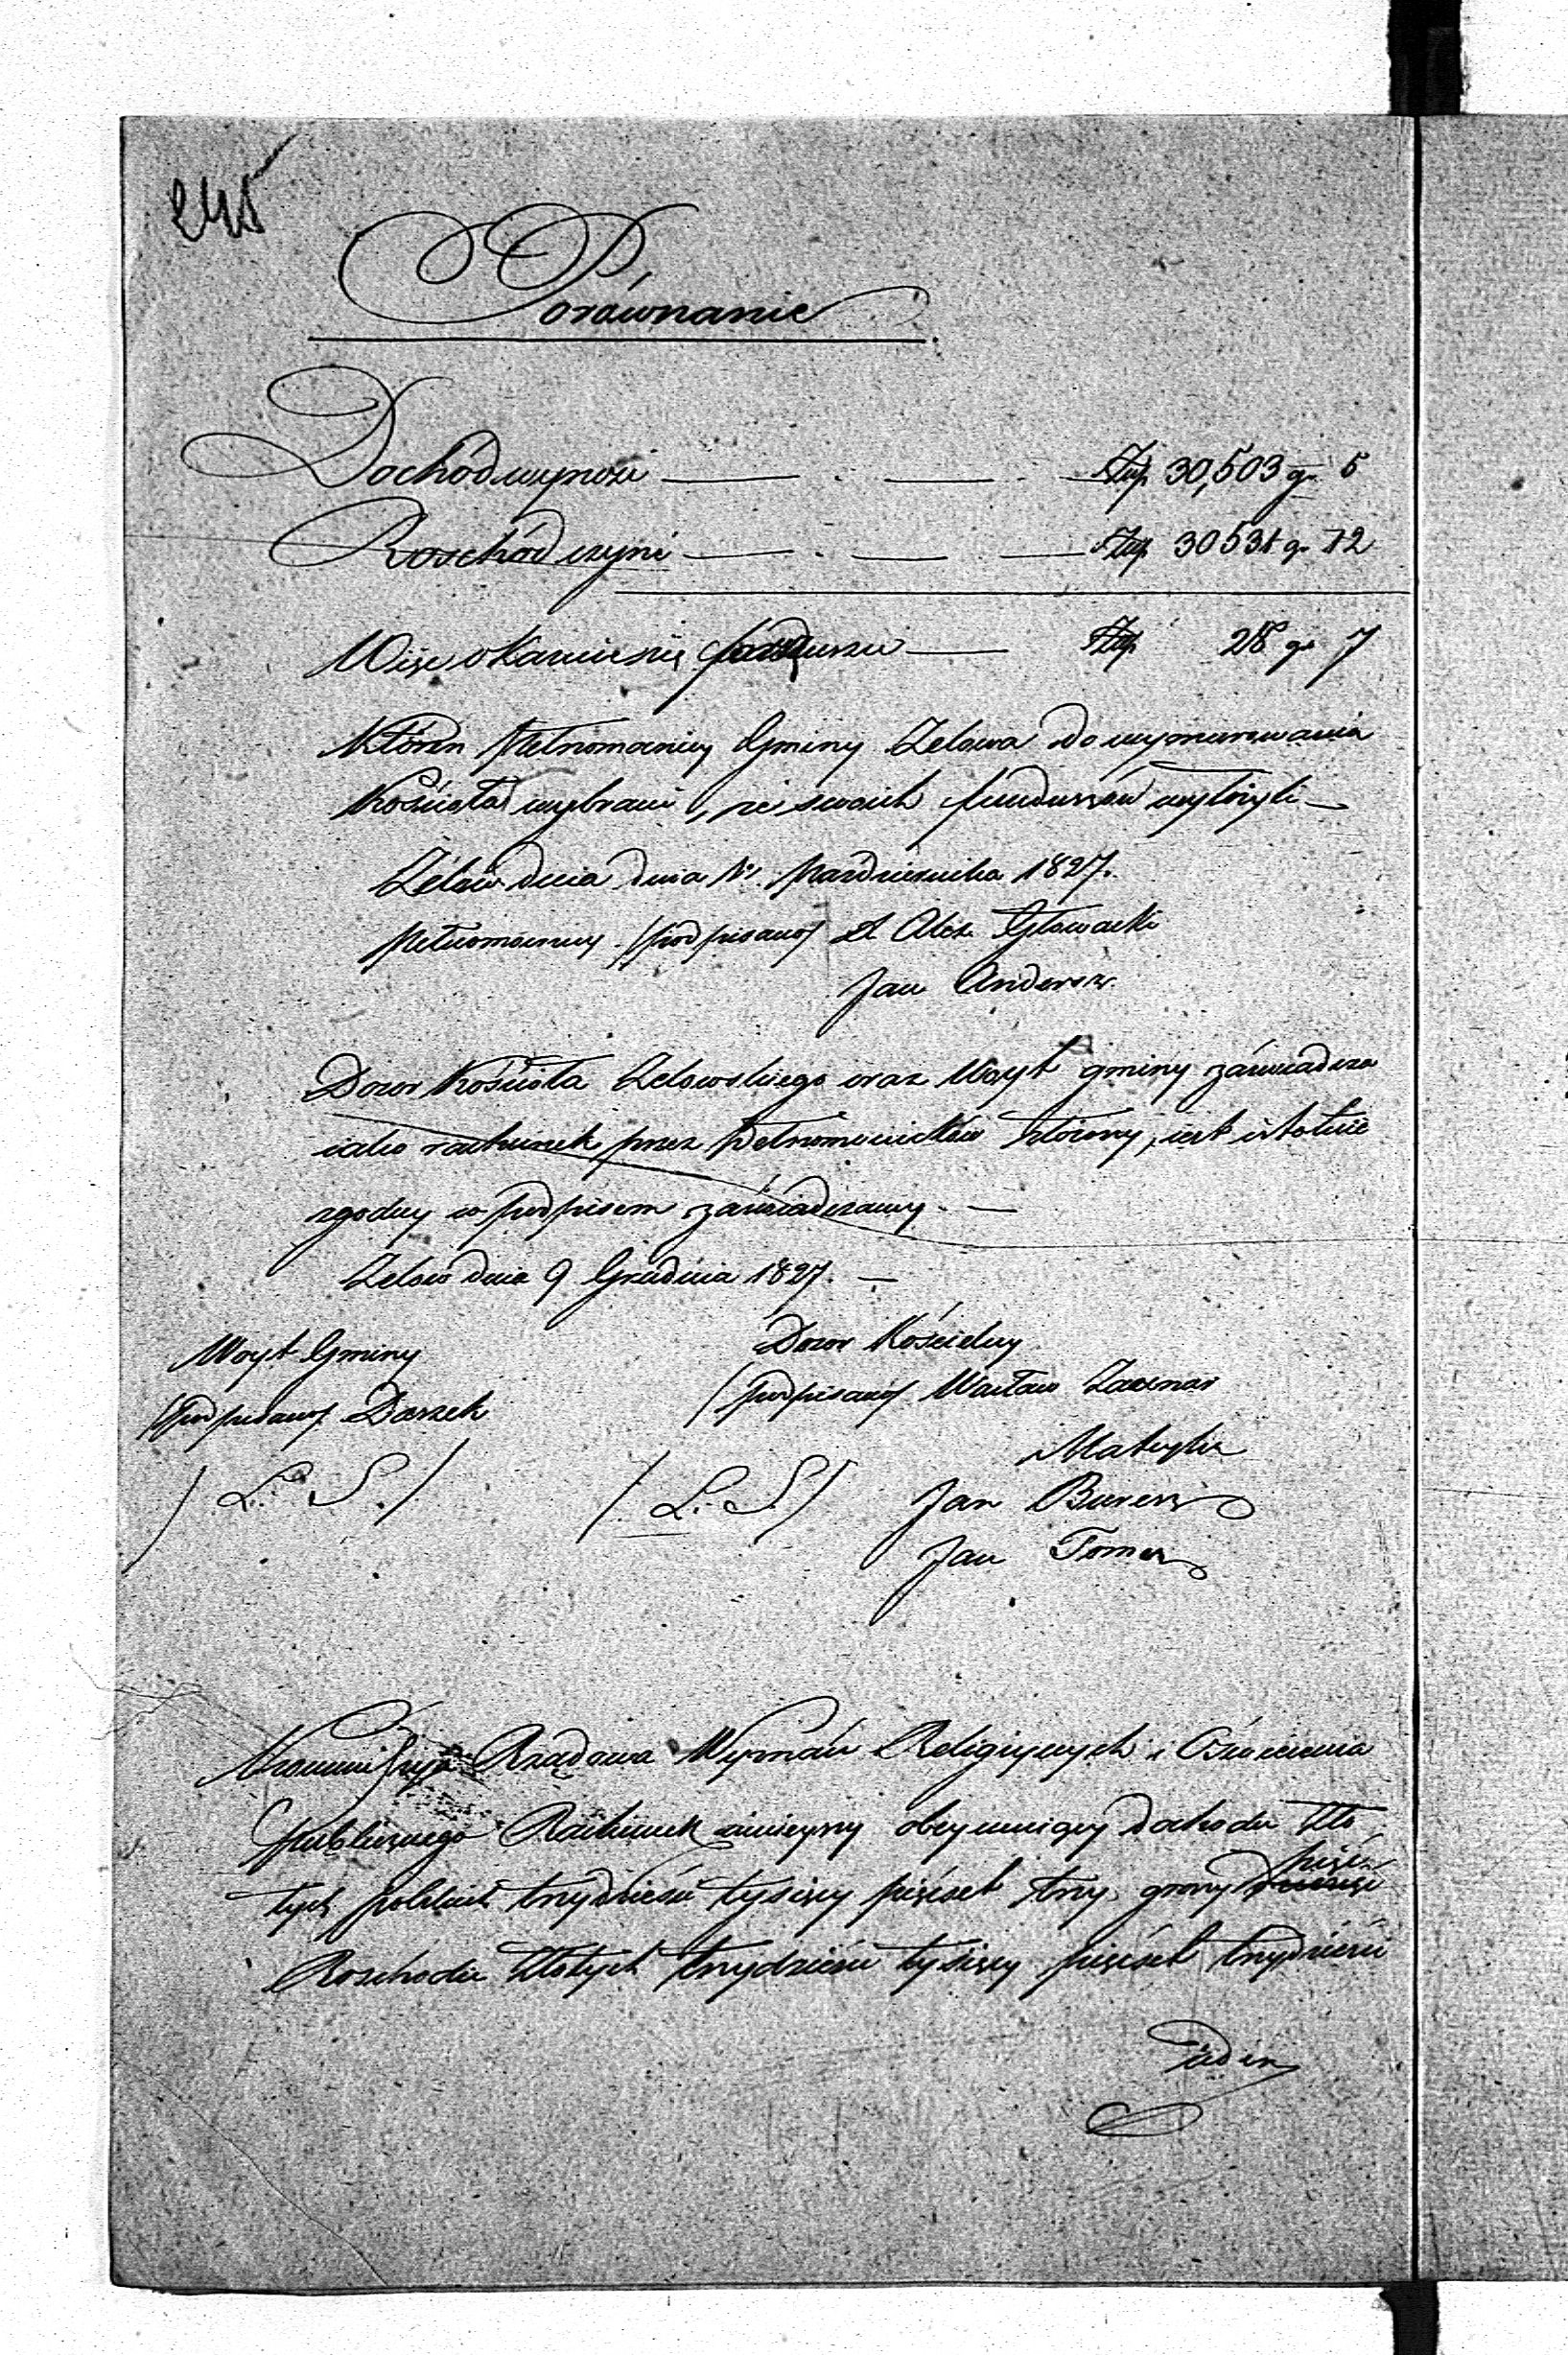 245
Porównanie
Dochód wynosi — . — . — Złp. 30,503 gr. 5
Roschód czyni — . — — Złp. 30531 gr. 12
Więc okazuie się — Złp. 28 gr. 7
Któren Pełnomocnicy Gminy Zelowa do wymurowania
Kościoła wybrani, ze swoich funduszów wyłożyli —
Zelów dnia Pazdziernika 1827.
Pełnomocnicy /podpisano/ Alex. Głowacki
Jan Andersz
Dozor Kościoła Zelowskiego oraz Woyt gminy zaświadcza
iako rachunek przez Pełnomocników złożony, iest istotnie
zgodny co podpisem zaświadczamy. —
Zelów dnia 9 Grudnia 1827. —
Woyt Gminy Dozor Kościelny
/podpisano/ /podpisano/ Wacław
/L. S./ /L. S./ Matys
Jan Buresz
Jan Tomesz
Kommissyja Rządowa Wyznań Religijnych i Oświecenia
publicznego Rachunek ninieyszy obeymuiący Dochodu Zło
tych polskich trzydzieści tysięcy pięćset trzy, groszy pięć
Roschodu Złotych trzydzieści tysięcy pięćset trzydzieści
ieden